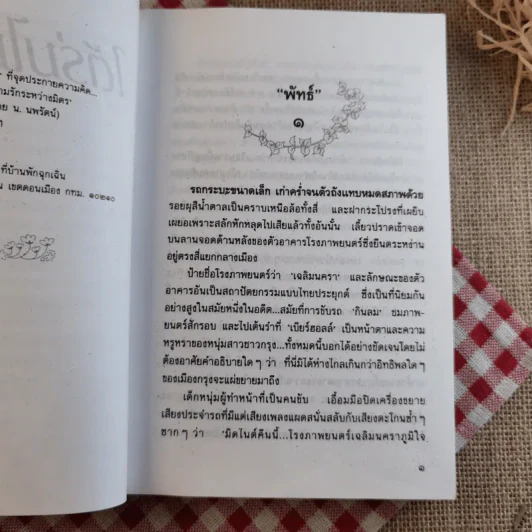 ที่จุดประกายความคิด...
ามรักระหว่างมิตร'
ย น. นพรัตน์)
ที่บ้านพักฉุกเฉิน
น เขตดอนเมือง กทม. ๑๐๒๑๐
"พัทธ์"
๑
รถกระบะขนาดเล็ก เก่าคร่ำจนตัวถังแทบหมดสภาพด้วย
รอยผุสีน้ำตาลเป็นคราบเหนือล้อทั้งสี่ และฝากระโปรงที่เผยิบ
เผยอเพราะสลักพักหลุดไปเสียแล้วทั้งอันนั้น เลี้ยวปราดเข้าจอด
บนลานจอดด้านหลังของตัวอาคารโรงภาพยนตร์ซึ่งยืนตระหง่าน
อยู่ตรงสี่แยกกลางเมือง
ป้ายชื่อโรงภาพยนตร์ว่า 'เฉลิมนครา' และลักษณะของตัว
อาคารอันเป็นสถาปัตยกรรมแบบไทยประยุกต์ ซึ่งเป็นที่นิยมกัน
อย่างสูงในสมัยหนึ่งในอดีต...สมัยที่การขับรถ 'กินลม' ชมภาพ-
ยนตร์สักรอบ และไปเต้นรำที่ 'เบียร์ฮอลล์' เป็นหน้าตาและความ
หรูหราของหนุ่มสาวชาวกรุง...ทั้งหมดนี้บอกได้อย่างชัดเจนโดยไม่
ต้องอาศัยคำอธิบายใด ๆ ว่า ที่นี่มิได้ห่างไกลเกินกว่าอิทธิพลใด ๆ
ของเมืองกรุงจะแผ่ขยายมาถึง
เด็กหนุ่มผู้ทำหน้าที่เป็นคนขับ เอื้อมมือปิดเครื่องขยาย
เสียงประจำรถที่มีแต่เสียงเพลงแผดสนั่นสลับกับเสียงตะโกนซ้ำ ๆ
ซาก ๆ ว่า 'มิดไนต์คืนนี้...โรงภาพยนตร์เฉลิมนคราภูมิใจ
๑